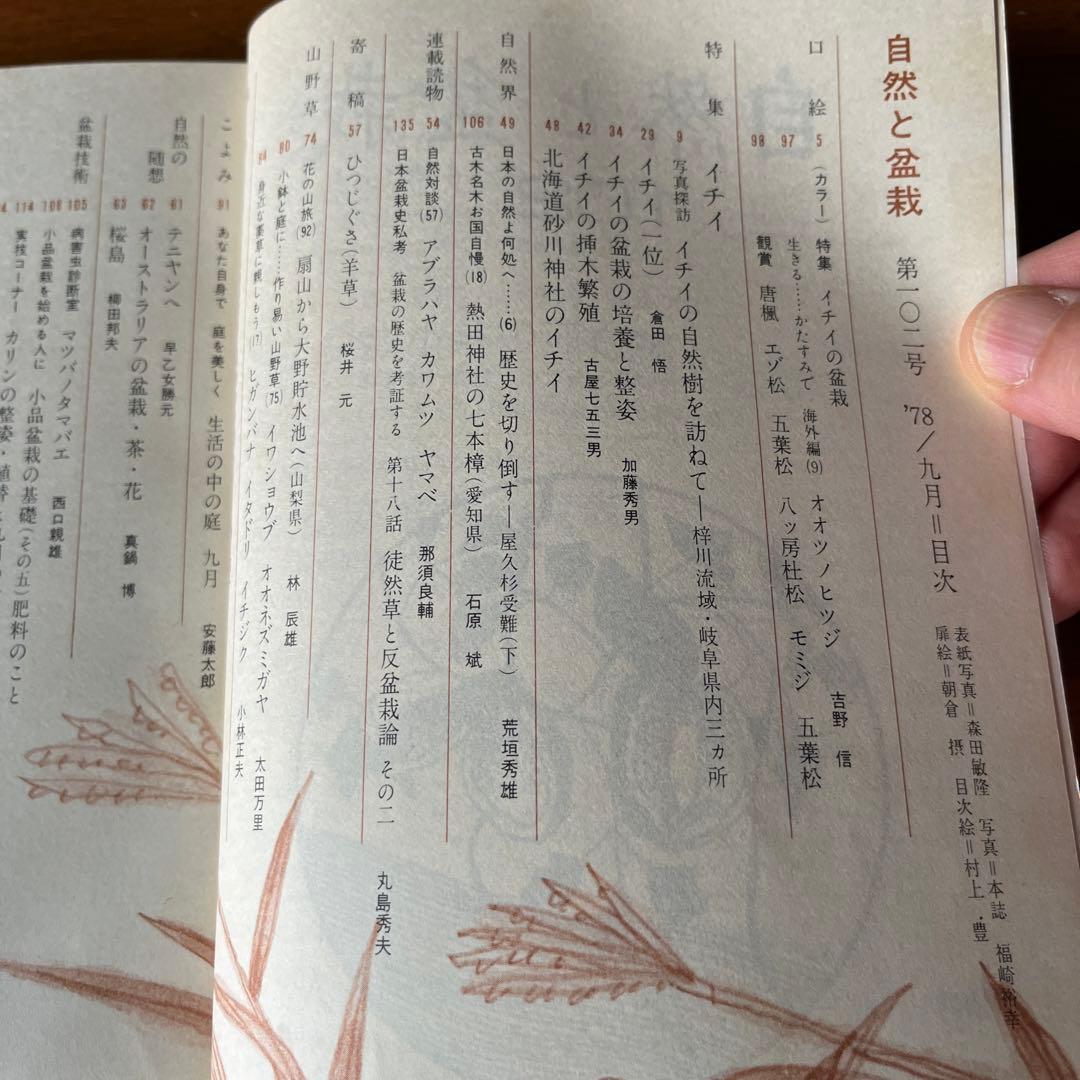 自然と盆栽 第一〇二号 '78／九月＝目次
表紙写真＝森田敏隆 写真＝本誌 福崎裕幸
扉絵＝朝倉 摂 目次絵＝村上・豊
口絵
5 （カラー）特集 イチイの盆栽
97 生きる……かたすみて 海外編(9) オオツノヒツジ 吉野 信
98 観賞 唐楓 エゾ松 五葉松 八ッ房杜松 モミジ 五葉松
特集 イチイ
9 写真探訪 イチイの自然樹を訪ねて―梓川流域・岐阜県内三ヵ所
29 イチイ（一位） 倉田 悟
34 イチイの盆栽の培養と整姿 加藤秀男
42 イチイの挿木繁殖 古屋七五三男
48 北海道砂川神社のイチイ
自然界
49 日本の自然よ何処へ……(6) 歴史を切り倒す―屋久杉受難（下） 荒垣秀雄
106 古木名木お国自慢(18) 熱田神社の七本樟（愛知県） 石原 斌
連載読物
54 自然対談(57) アブラハヤ カワムツ ヤマベ 那須良輔
135 日本盆栽史私考 盆栽の歴史を考証する 第十八話 徒然草と反盆栽論 その二 丸島秀夫
寄稿
57 ひつじぐさ（羊草） 桜井 元
山野草
74 花の山旅(92) 扇山から大野貯水池へ（山梨県） 林 辰雄
80 小鉢と庭に……作り易い山野草(75) イワショウブ オオネズミガヤ 太田万里
84 身近な薬草に親しもう(17) ヒガンバナ イタドリ イチジク 小林正夫
こよみ
91 あなた自身で 庭を美しく 生活の中の庭 九月 安藤太郎
自然の随想
61 テニヤンへ 早乙女勝元
62 オーストラリアの盆栽・茶・花 真鍋 博
63 桜島 柳田邦夫
盆栽技術
105 病害虫診断室 マツバノタマバエ 西口親雄
108 小品盆栽を始める人に 小品盆栽の基礎（その五）肥料のこと
114 実技コーナー カリンの整姿・植替